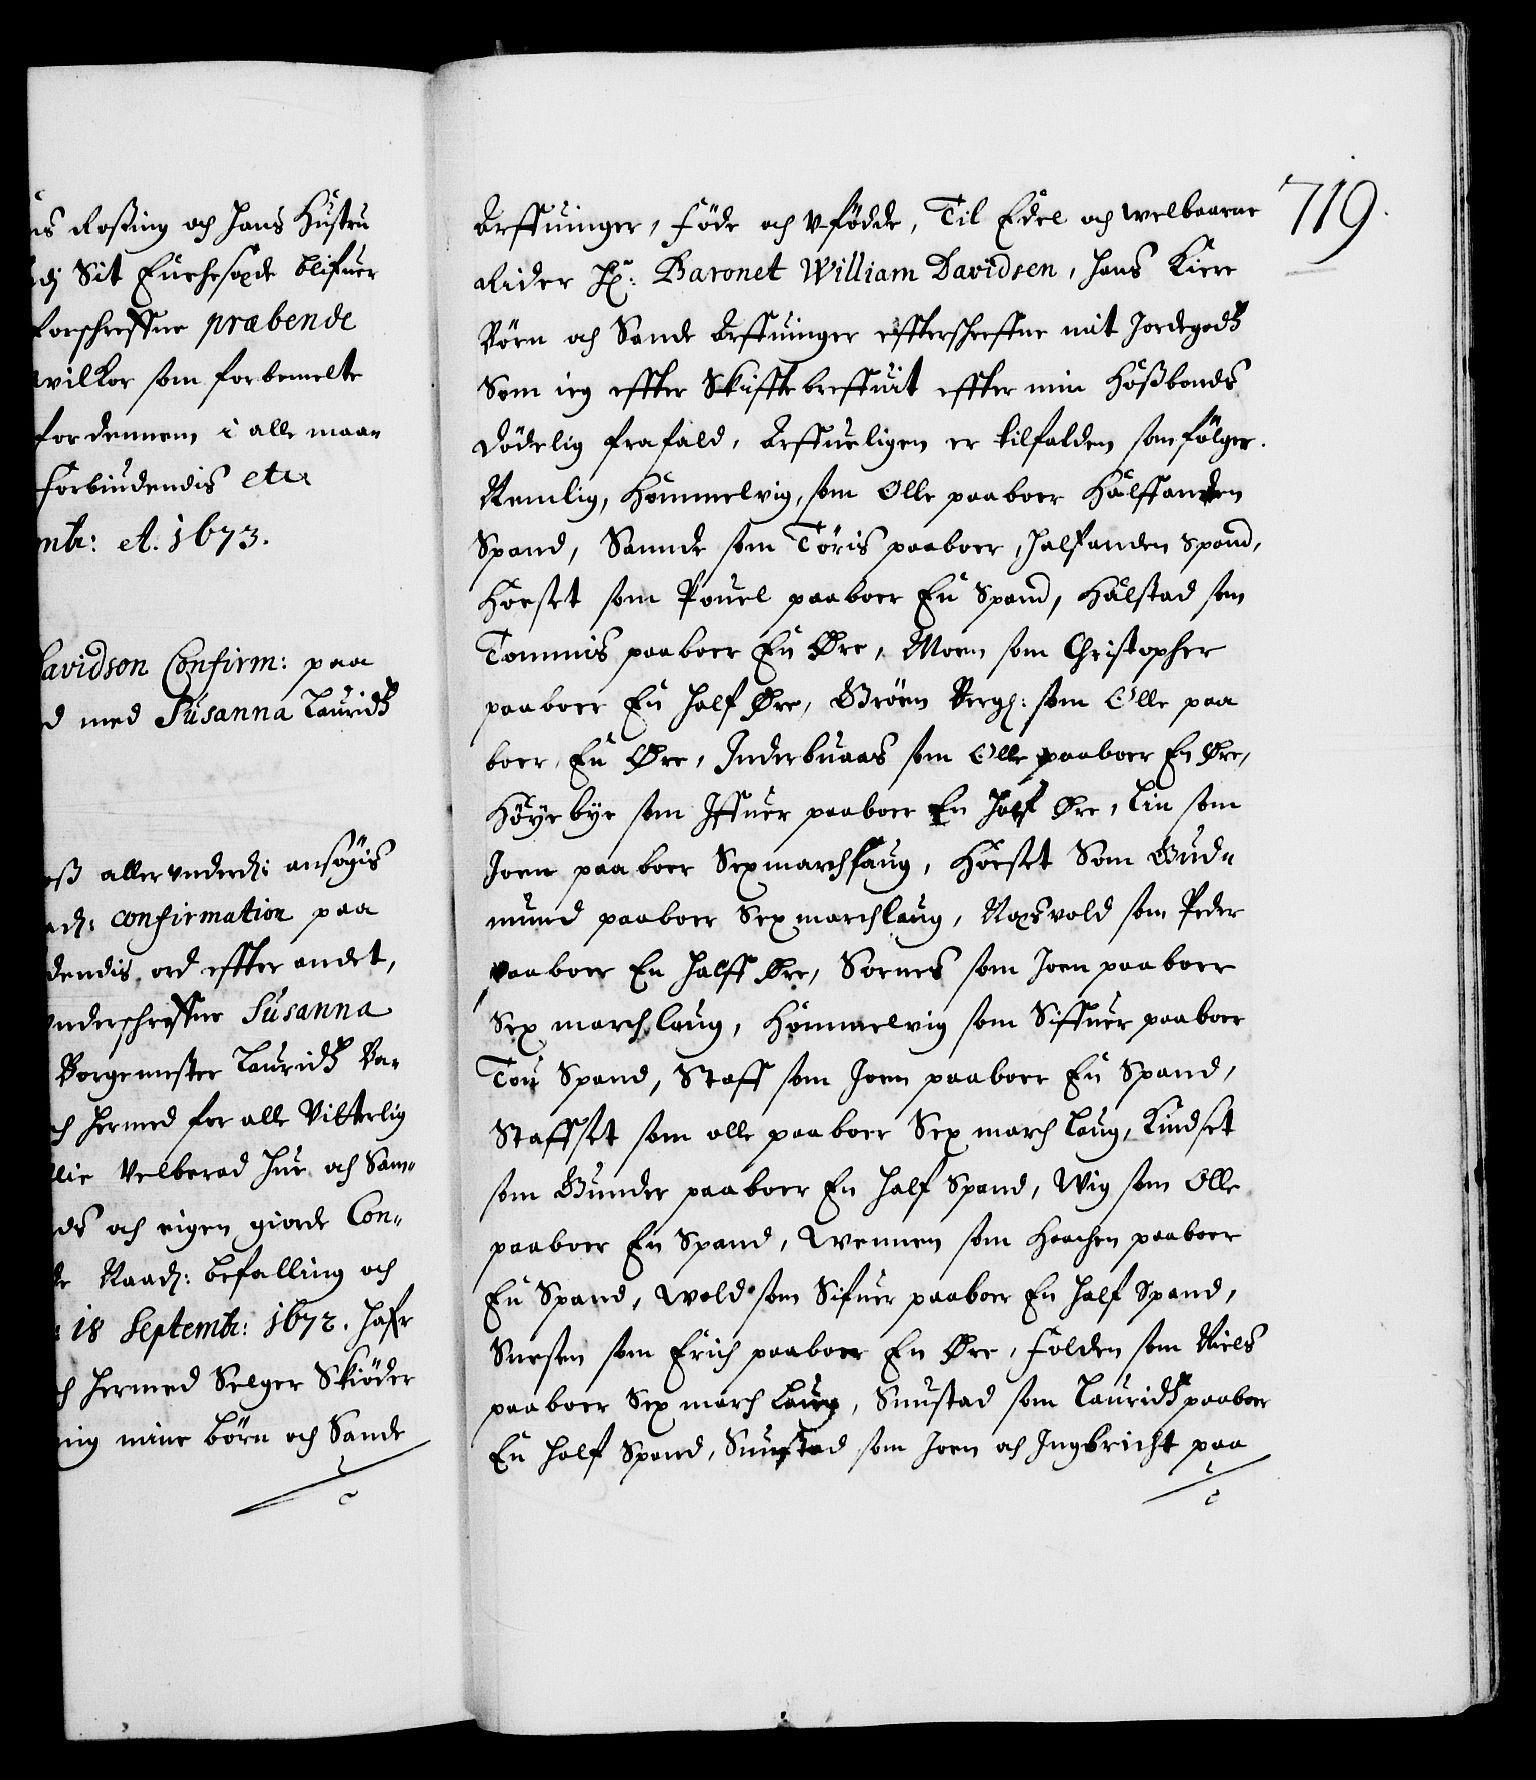 Rosing och hans Hustru
Sit Euchesexde blifuer
forschreffne præbende
wilkor som forbemelte
for dennem i alle maa-
forbindendis etc
A. 1673.
Davidson Confirm: paa
med Susanna Lauridtz
allerunderd: ansøgis
confirmation paa
ord effter andet,
underschreffne Susanna
Borgemester Lauridtz
hermed for alle Vitterlig
Velberad Hue och Sam-
och eigen giorde Con-
Naad: befalling och
18 Septemb: 1672. hafr
hermed Selger Skiøder
mine børn och Sande
719.
Arffuinger, føde och ufødde, Til Edel och welbaarne
Rider Hr: Baronet William Davidsen, hans Kiere
Børn och Sande Arffuinger effterschreffne mit Jordegodtz
Som ieg effter Skifftebreffuit effter min Hoßbonds
dødelig frafald, Arffueligen er tilfalden som følger.
Nemlig, Hommelvig, som Olle paaboer Halffanden
Spand, Sannde som Töris paaboer, halfanden Spand,
Hoeset som Pouel paaboer En Spand, Halstad som
Tommis paaboer En Øre, Moen som Christopher
paaboer En half Øre, Grøen Bergh: som Olle paa
boer, En Øre, Inderbuaas som Olle paaboer En Øre,
Høyebye som Iffuer paaboer En Half Øre, Lin som
Joen paaboer Sexmarchlaug, Hoeset Som Gud-
mund paaboer Sexmarchlaug, Naxsvold som Peder
paaboer En halff Øre, Sornes som Joen paaboer
Sex march laug, Hommelvig som Siffuer paaboer
Tou Spand, Staff som Joen paaboer En Spand,
Staffset som olle paaboer Sex march laug, Kindset
som Gunder paaboer En half Spand, Wig som Olle
paaboer En Spand, Wennen som Haachen paaboer
En Spand, Wold som Sifuer paaboer En half Spand,
Snesen som Erich paaboer En Øre, Folden som Niels
paaboer Sex march Laug, Sunstad som Lauridtz paaboer
En half Spand, Sunstad som Joen och Ingbricht paa